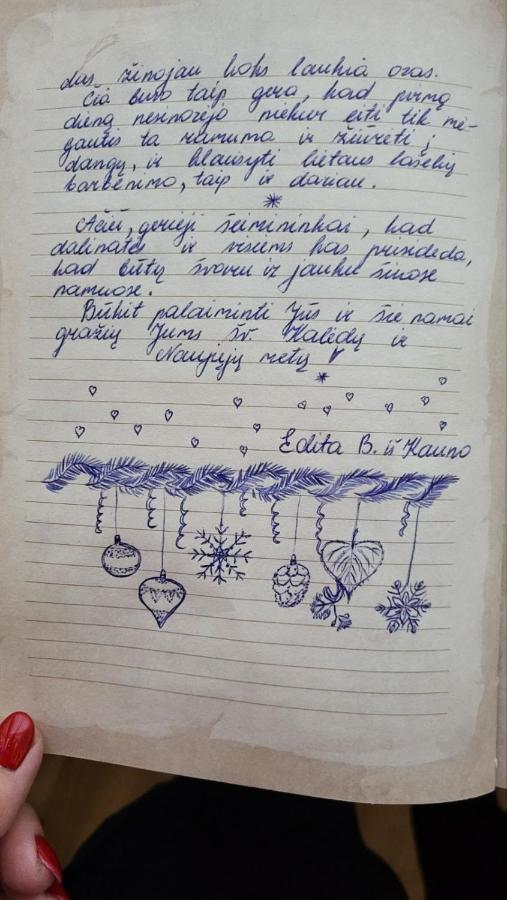 das žinojau koks laukia oras.
Čia buvo taip gera, kad pirmą
dieną nesinorėjo niekur eiti tik mė-
gautis ta ramuma ir žiūrėti į
dangų, ir klausyti lietaus lašelių
barbėnimo, taip ir dariau.
Ačiū, gerieji šeimininkai, kad
dalinatės ir visiems kas prisideda,
kad būtų švaru ir jauku šiuose
namuose.
Būkit palaiminti Jūs ir šie namai
gražių Jums šv. Kalėdų ir
Naujųjų metų!
Edita B. iš Kauno